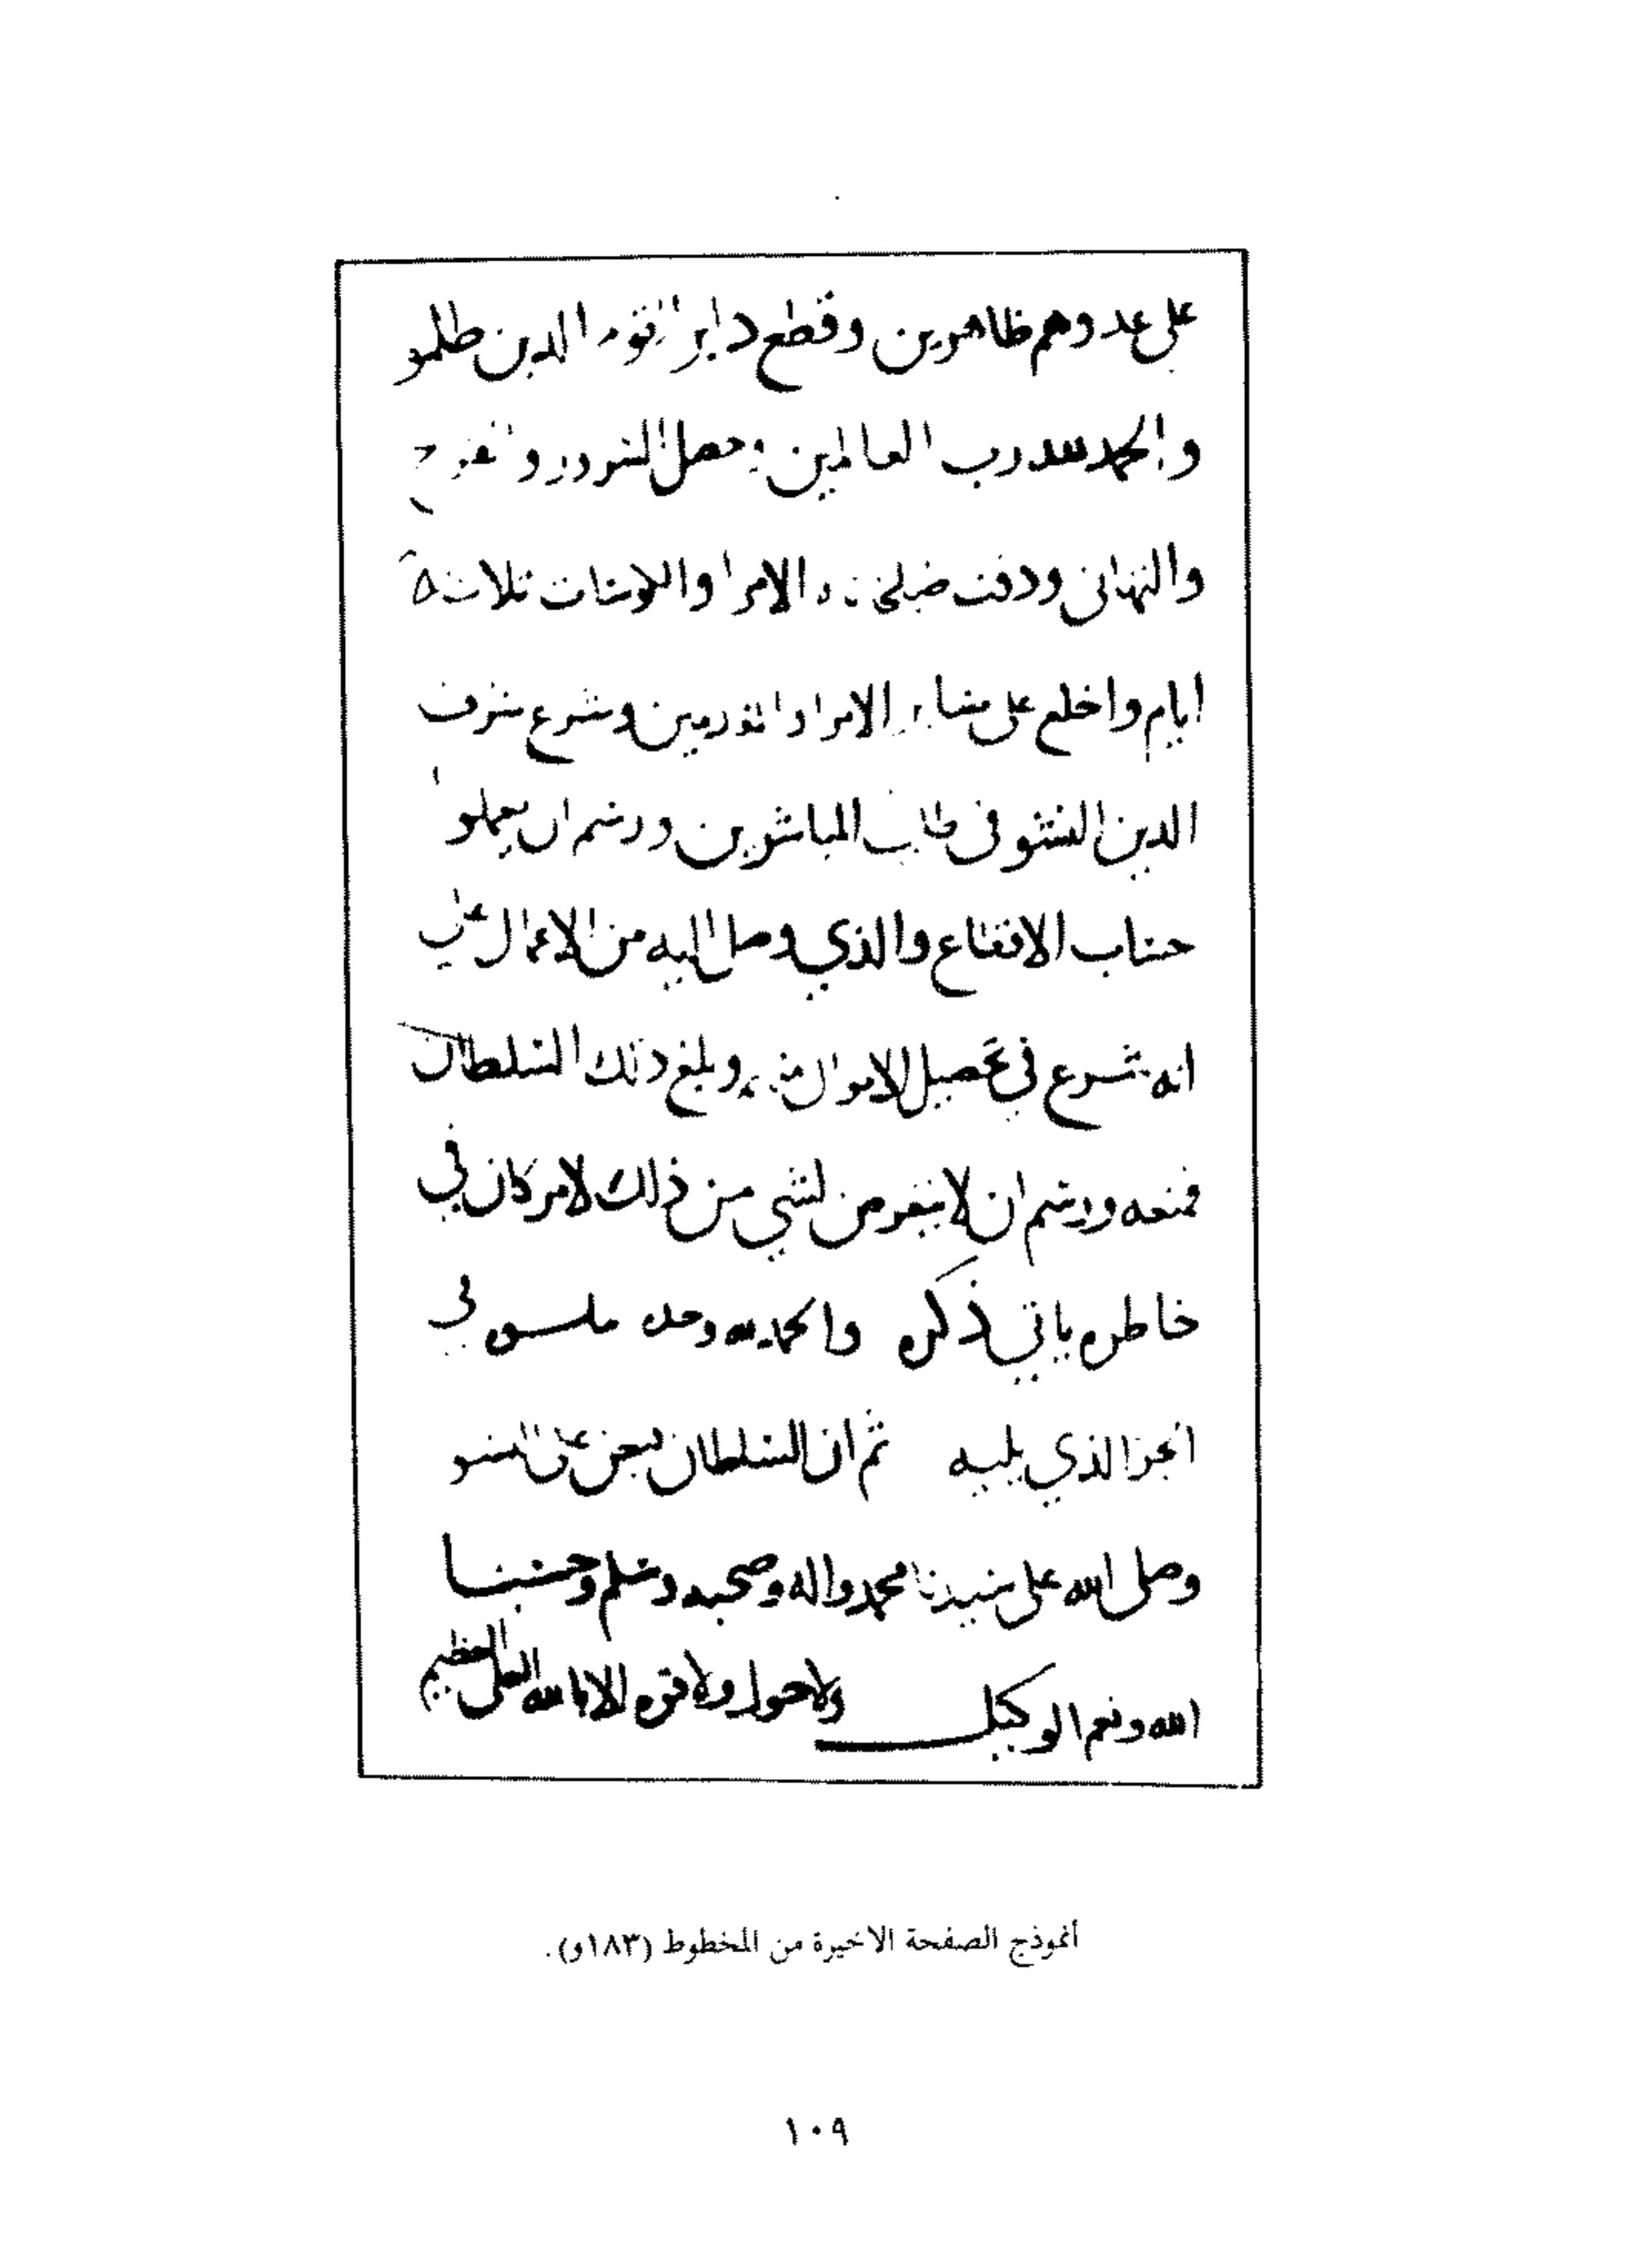 على عدوهم ظاهرين وقطع دابر القوم الدين ظلمو
والحمد لله رب العالمين وحصل السرور والفرح
والتهانى ودقت طبلخاناه الامرا والكوسات ثلاثة
ايام واخلع على مشاير الامرا والمقدمين وشرع شرف
الدين النشو فى طلب المباشرين ورسم ان يعملوا
حساب الاقطاع والذي وصل اليه من الاعمال على
انه شرع في تحصيل الاموال منه وبلغ ذلك السلطان
فمنعه ورسم ان لا يتعرض لشي من ذلك لامر كان في
خاطره ياتي ذكره والحمد لله وحده في
الجزا الذي يليه ثم ان السلطان على النشو
وصلى الله على سيدنا محمد واله وصحبه وسلم وحسبنا
الله ونعم الوكيل ولا حول ولا قوه الا بالله العلى العظيم
أنموذج الصفحة الاخيرة من المخطوط (١٨٣و).
١٠٩